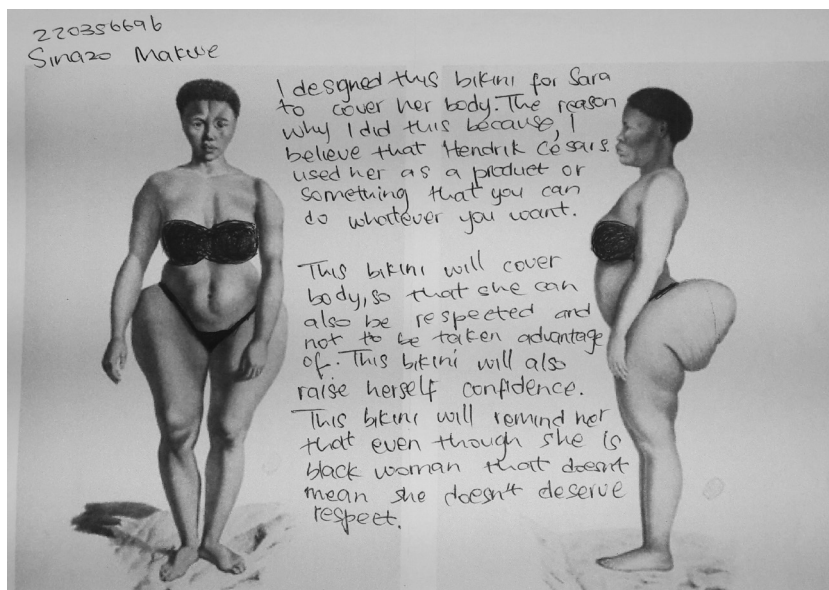 220356696
Sinazo Makwe
I designed this bikini for Sara
to cover her body. The reason
why I did this because, I
believe that Hendrik Cesars
used her as a product or
something that you can
do whatever you want.
This bikini will cover
body, so that she can
also be respected and
not to be taken advantage
of. This bikini will also
raise herself confidence.
This bikini will remind her
that even though she is
black woman that doesn't
mean she doesn't deserve
respect.